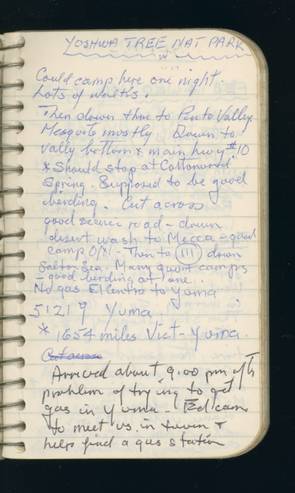 YOSHWA TREE NAT PARK
Could camp here one night.
Lots of
Then down thru to Pinto Valley
Mesquite mostly Down to
vally bottom & main hwy #10
* Should stop at Cottonwood
Spring. Supposed to be good
birding. Cut across
good scenic road - down
desert wash to Mecca - good
camp Then to 111 down
Salton Sea. Many gov't camps
- good birding at one.
No gas El Centro to Yuma
51219 Yuma.
* 1654 miles Vict - Yuma.
Arrived about 9:00 pm
problem of trying to get
gas in Yuma - Ed came
to meet us in town &
helps find a gas station